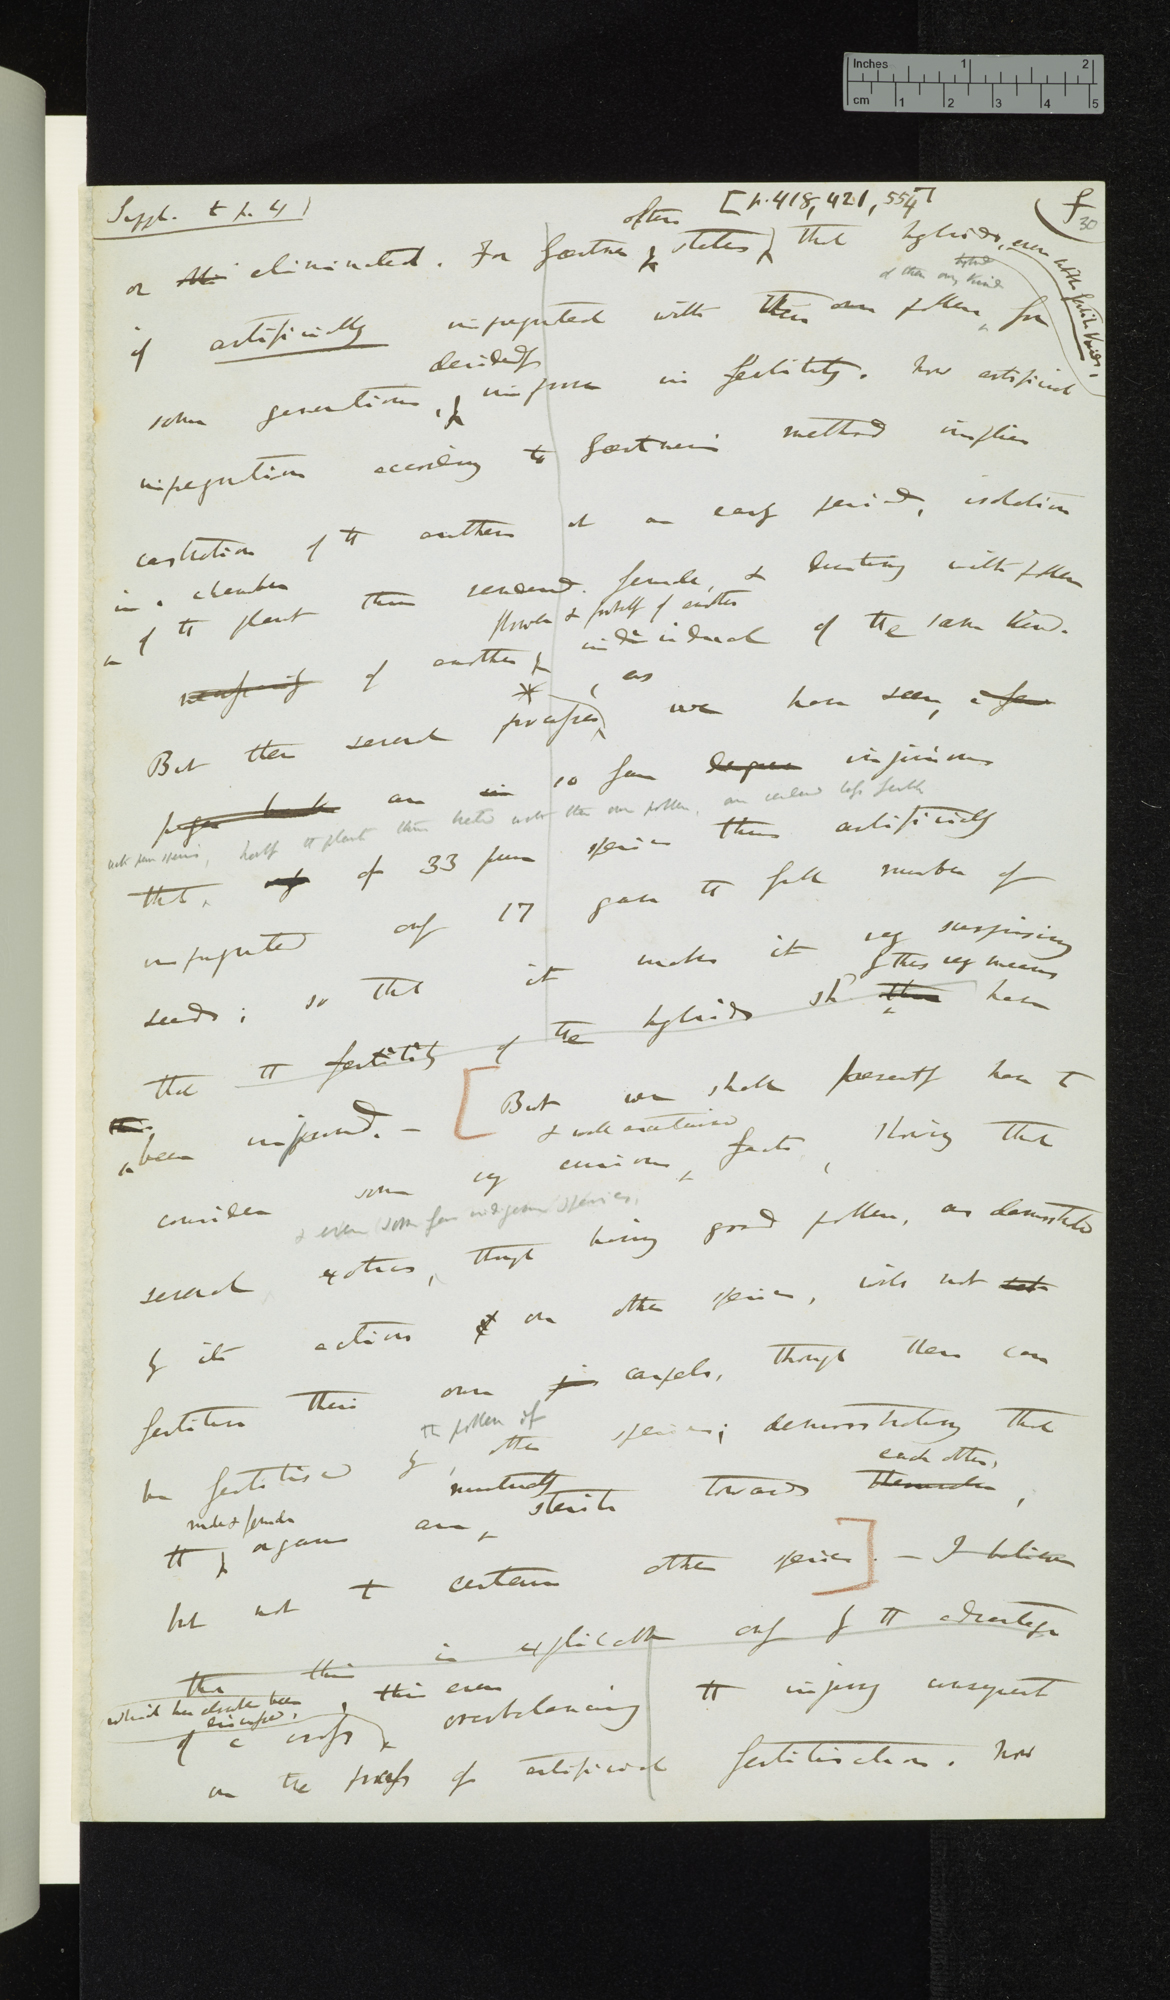 Inches 1 2
cm 1 2 3 4 5
Suppl. to p. 41
[p. 418, 421, 554]
30
often
or eliminated. For Gærtner states that hybrids, even with fertile kinds.
of their own kind
if artificially impregnated with their own pollen, for
decidedly
some generations, improve in fertility. Now artificial
impregnation according to Gærtner's method implies
castration of the anthers at an early period, isolation
in a chamber
of the plant thus rendered female, & dusting with pollen
flower & partly of another
of another individual of the same kind.
as
But these several processes, we have seen, a few
are in so far degree injurious
pure species, half the plants thus treated with their own pollen, are rendered less fertile
that, only of 33 pure species thus artificially
impregnated only 17 gave the full number of
seeds; so that it makes it very surprising
by this very means
that the fertility of the hybrids shd have
been improved. — [But we shall presently have to
& well ascertained
consider some very curious facts, showing that
& even (some few indigenous species,
several exotics, though having good pollen, as demonstrated
by its action on other species, will not
fertilise their own carpels, though these can
the pollen of
be fertilised by other species; demonstrating that
each other,
mutually
male & female
the organs are sterile towards themselves,
but not to certain other species]. — I believe
that this is explicable only by the advantage
which has already been
discussed,
of a cross, this even overbalancing the injury consequent
on the process of artificial fertilisation. Now